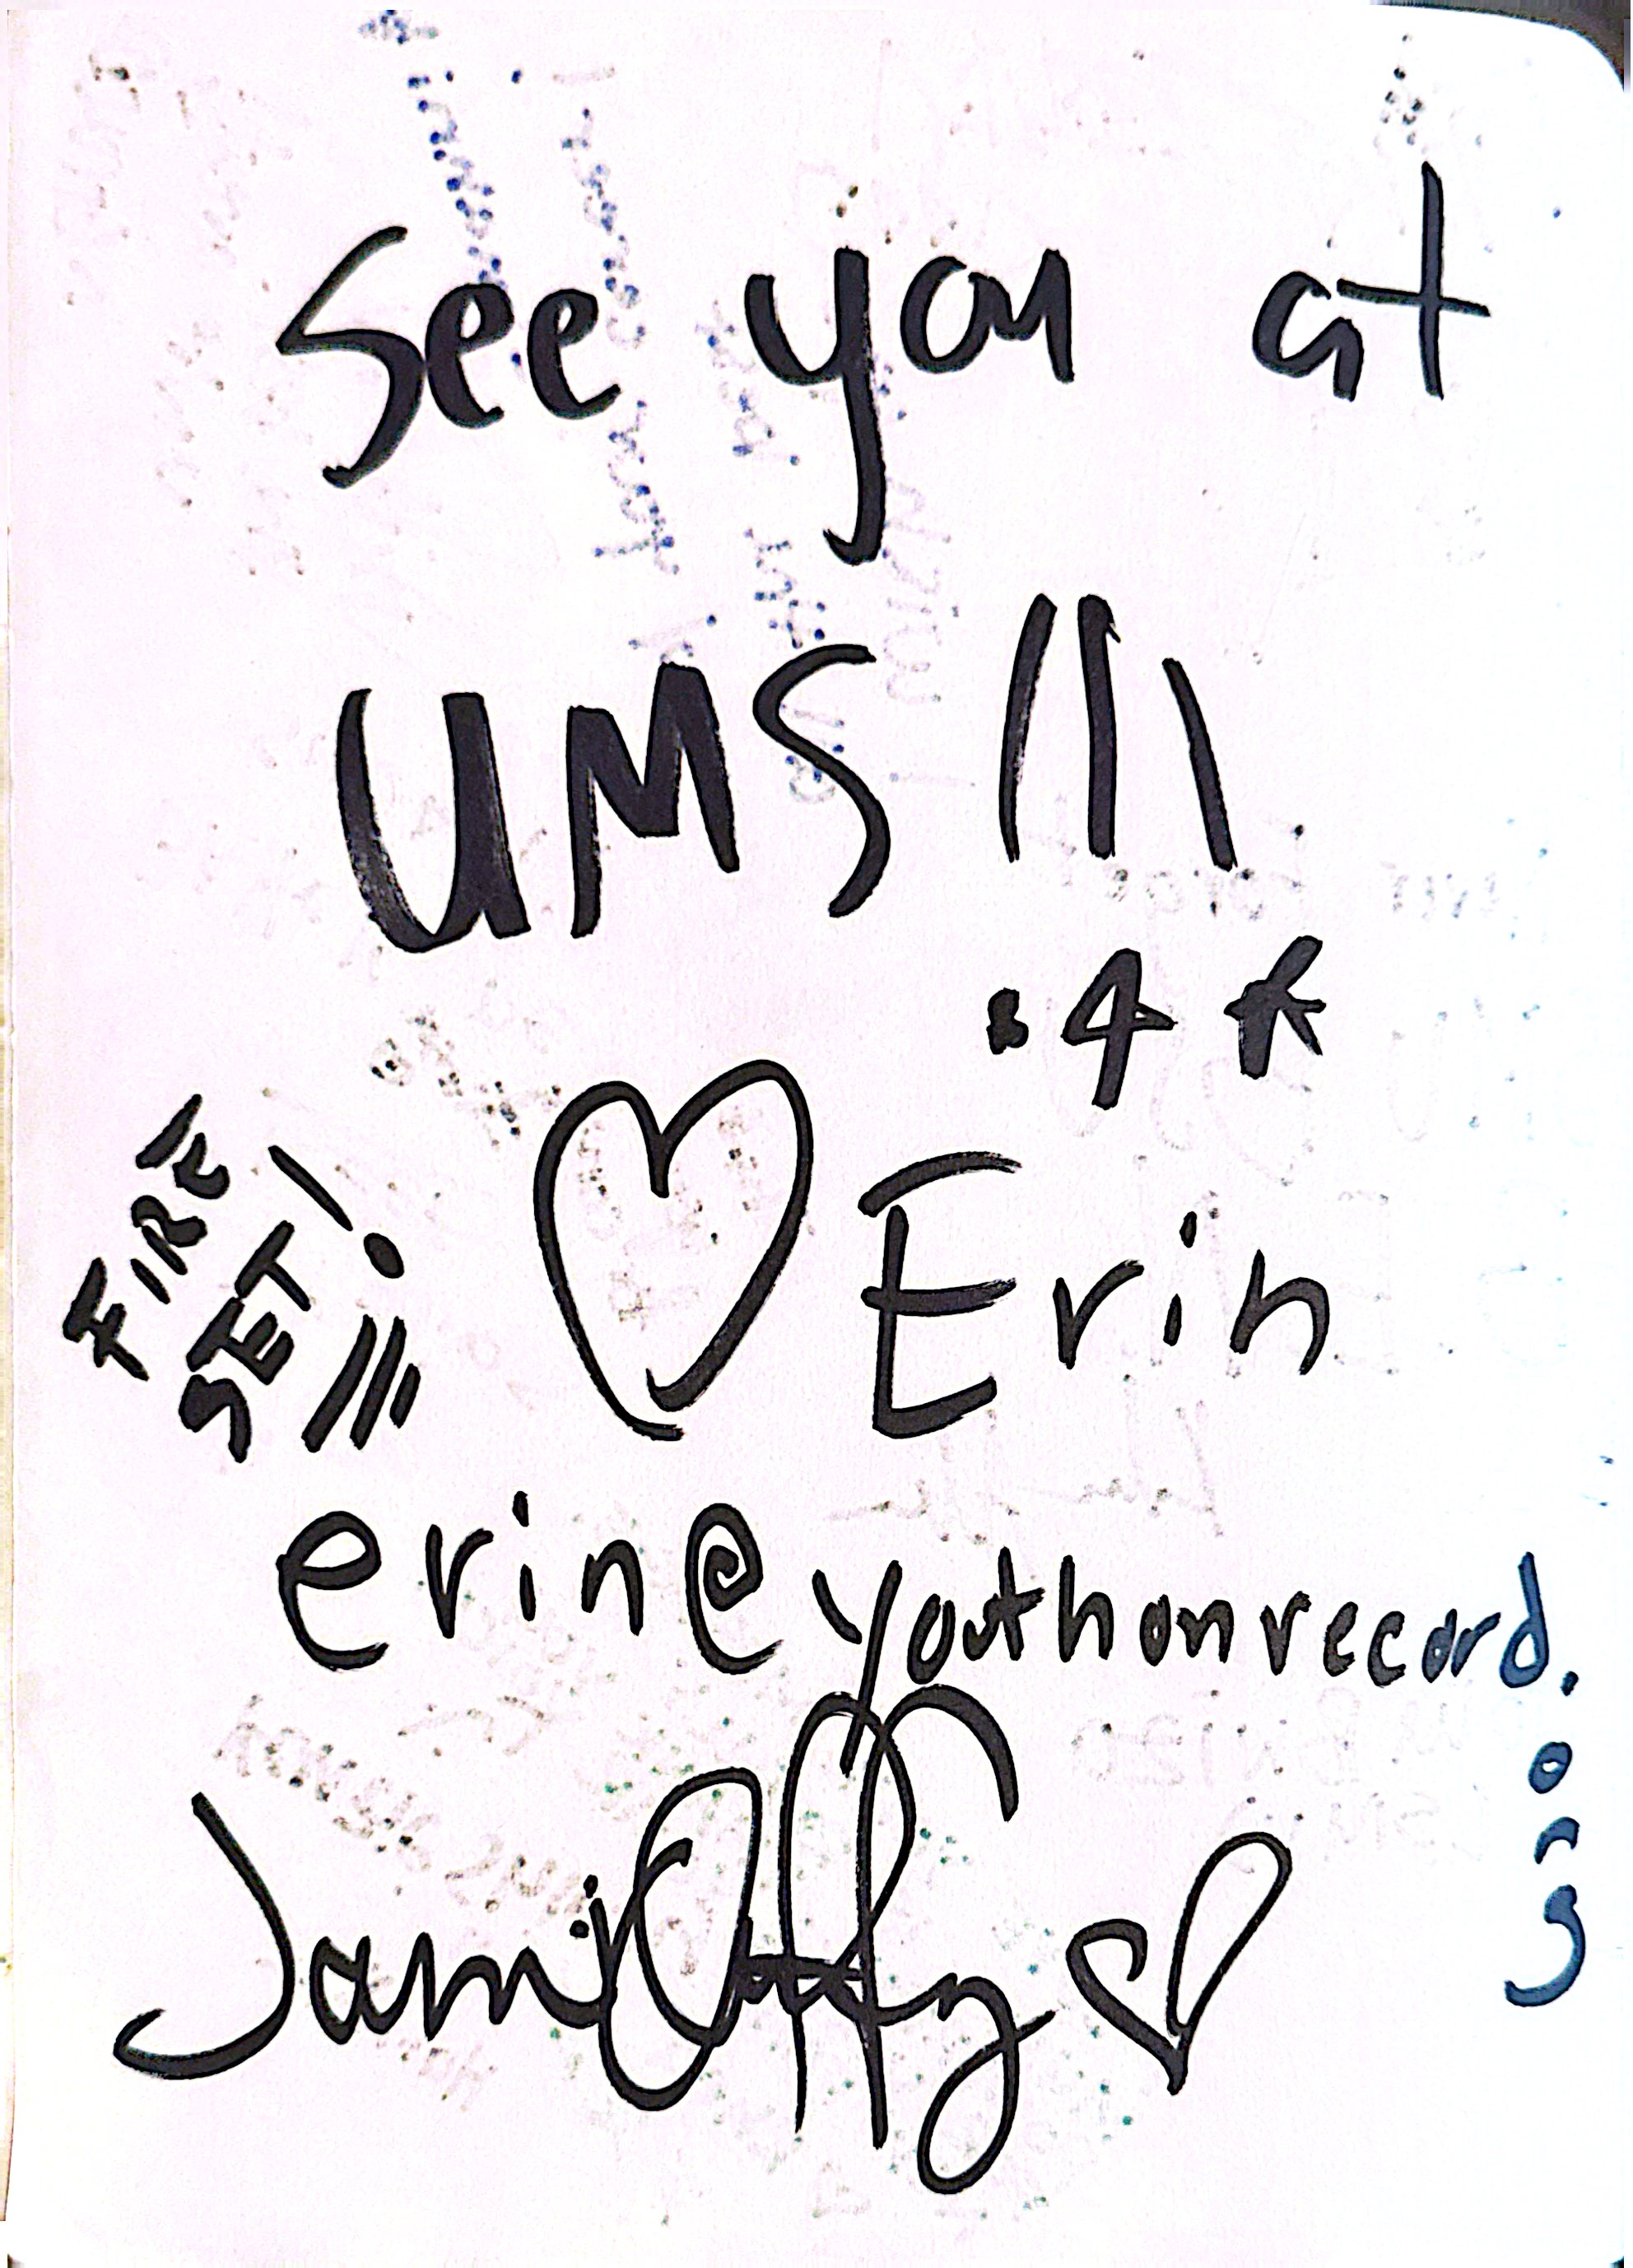 See you at
UMS!!!
♡ Erin
FIRE
SET!
erin@youthonrecord.
org
Jami Duffy ♡